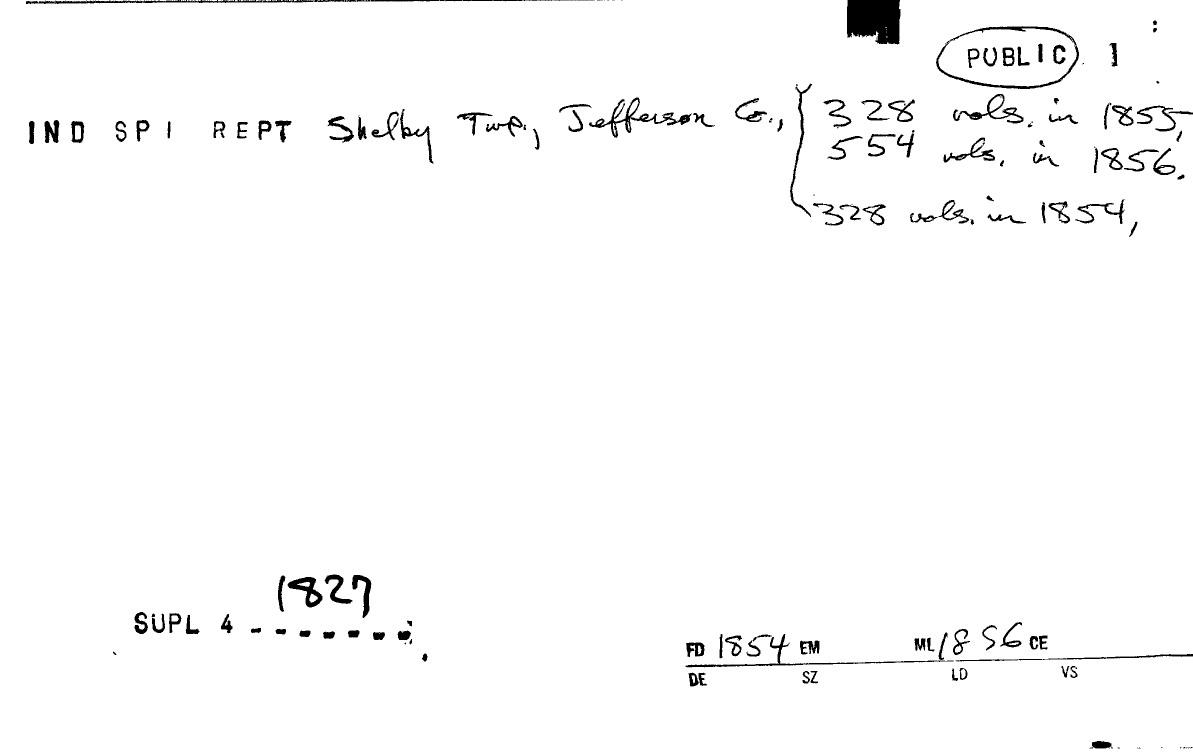 PUBLIC 1
IND SPI REPT Shelby Twp., Jefferson Co., 328 vols. in 1855,
554 vols. in 1856.
328 vols. in 1854,
1827
SUPL 4 - - - - - - -
FD 1854 EM ML 1856 CE
DE SZ LD VS